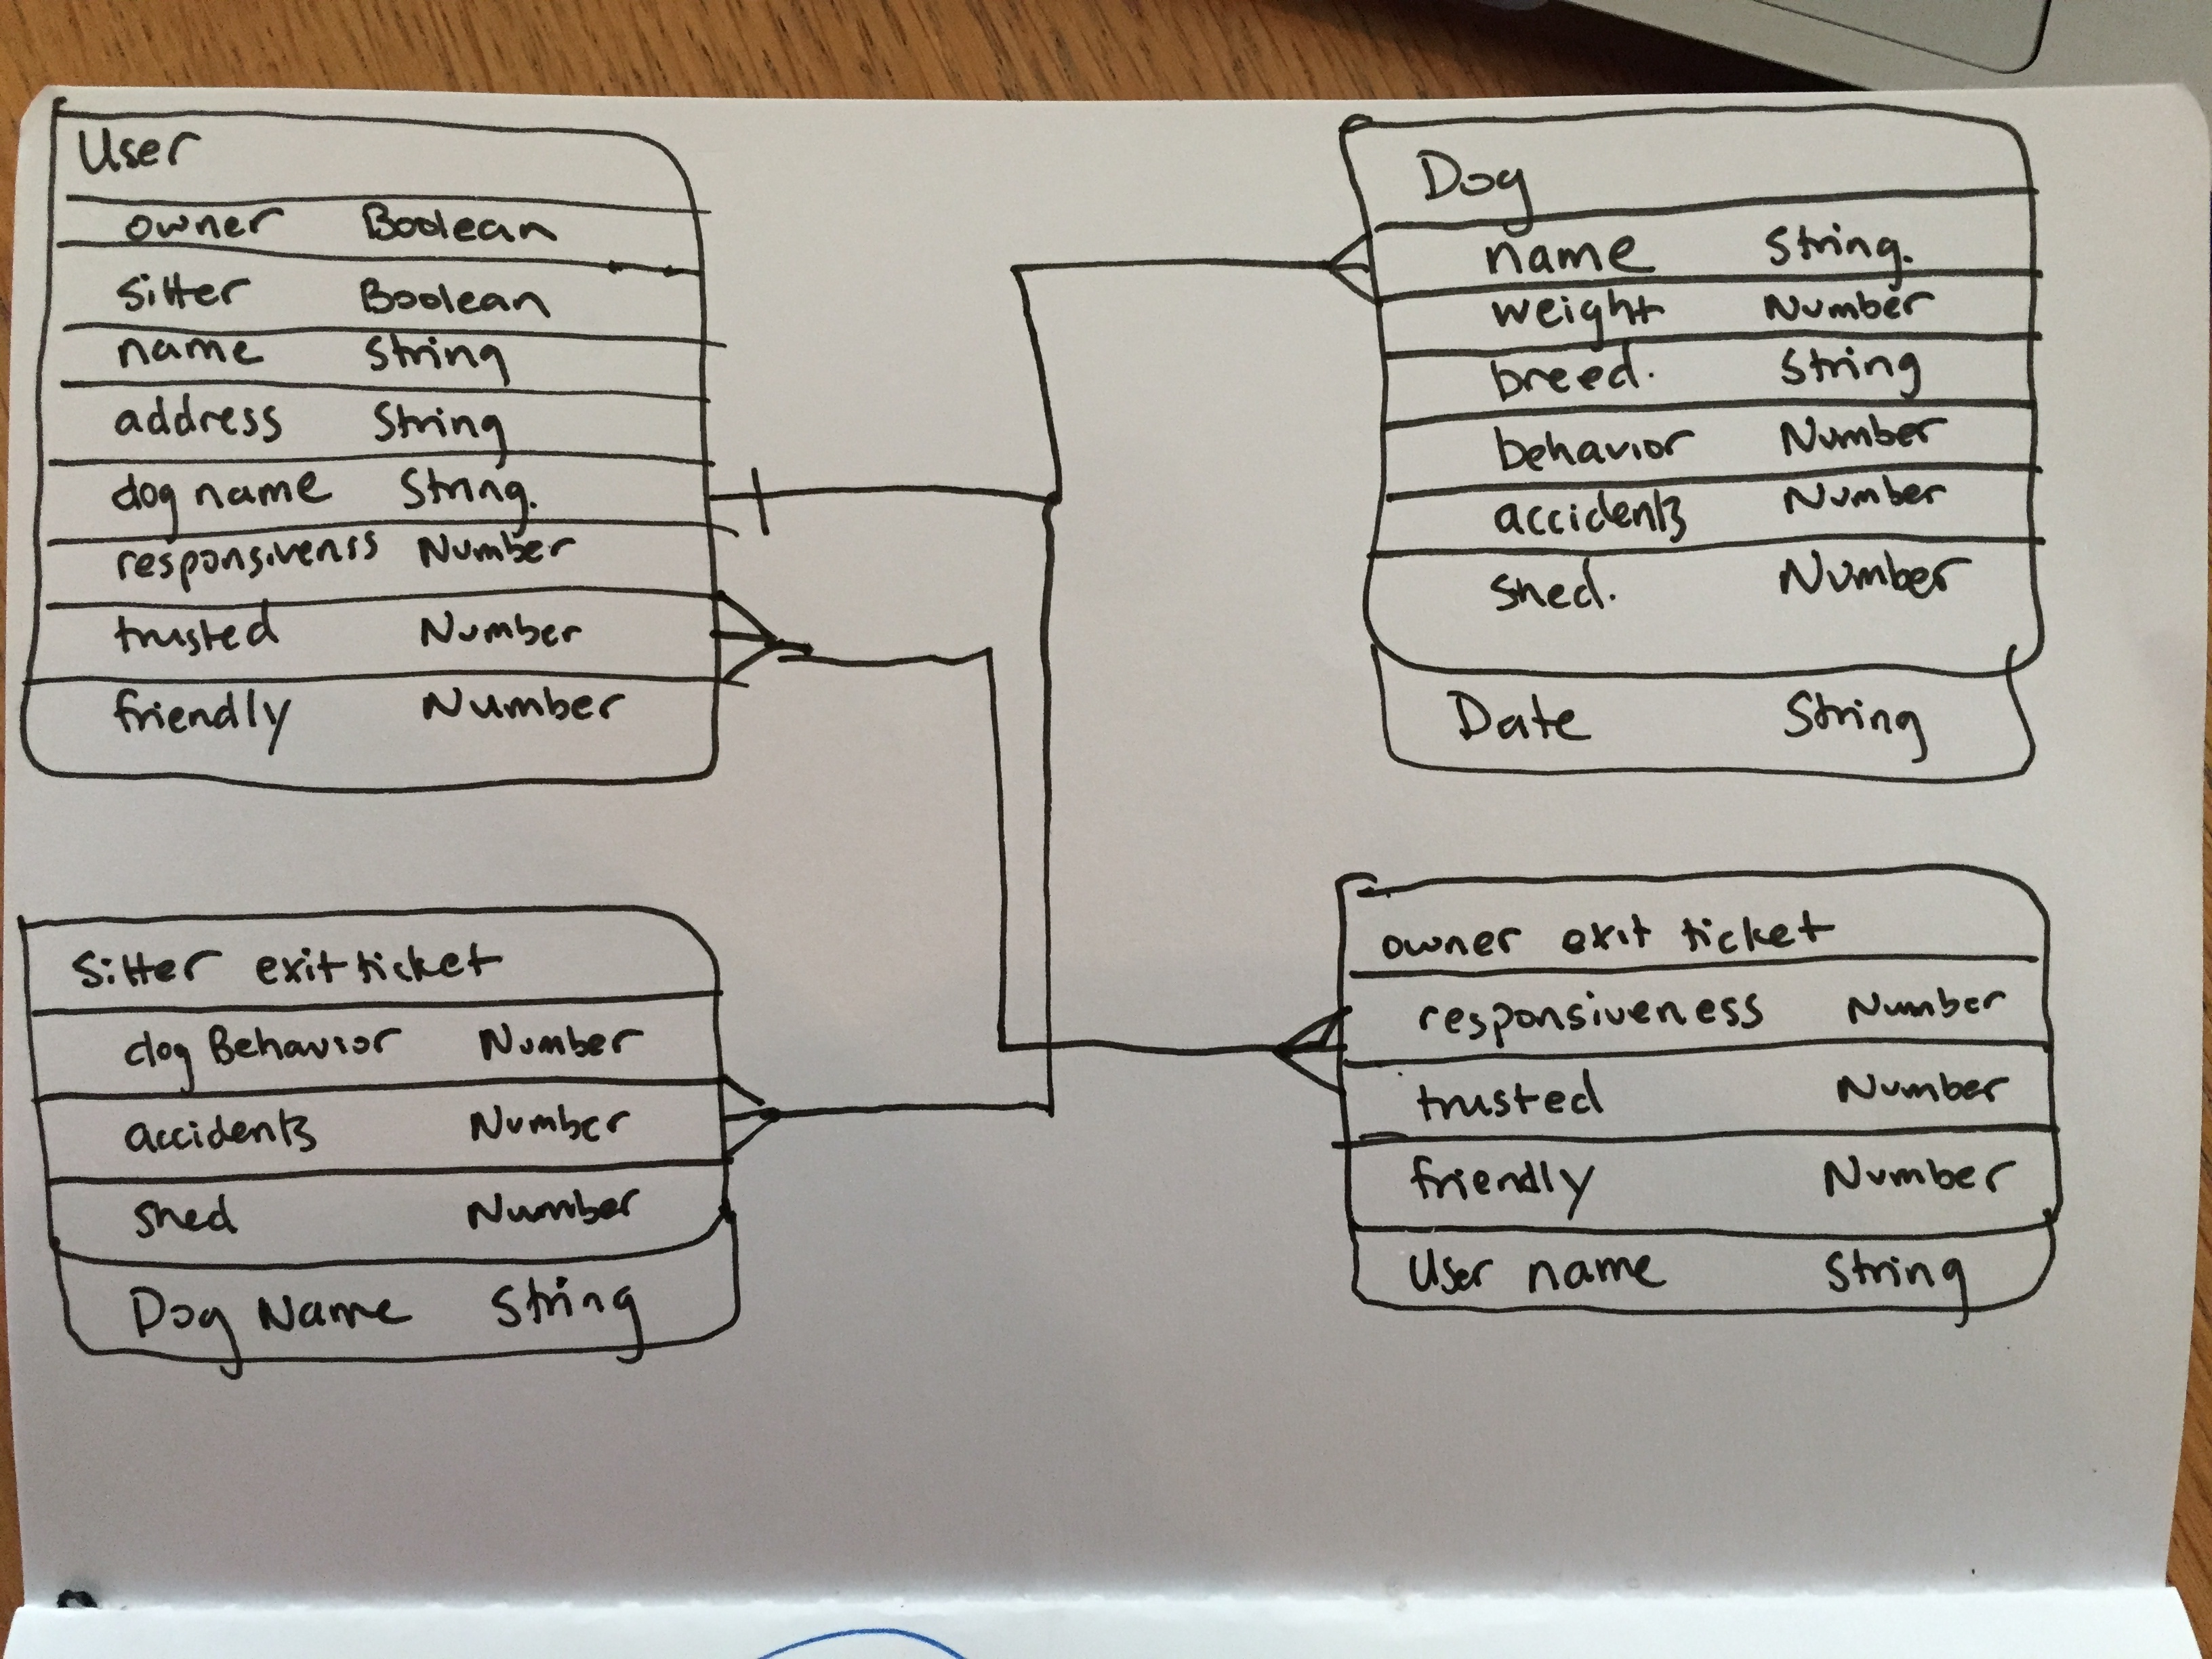 User
owner Boolean
sitter Boolean
name String
address String
dog name String.
responsiveness Number
trusted Number
friendly Number
Dog
name String.
weight Number
breed. String
behavior Number
accidents Number
shed. Number
Date String
Sitter exit ticket
dog Behavior Number
accidents Number
shed Number
Dog Name String
owner exit ticket
responsiveness Number
trusted Number
friendly Number
User name String